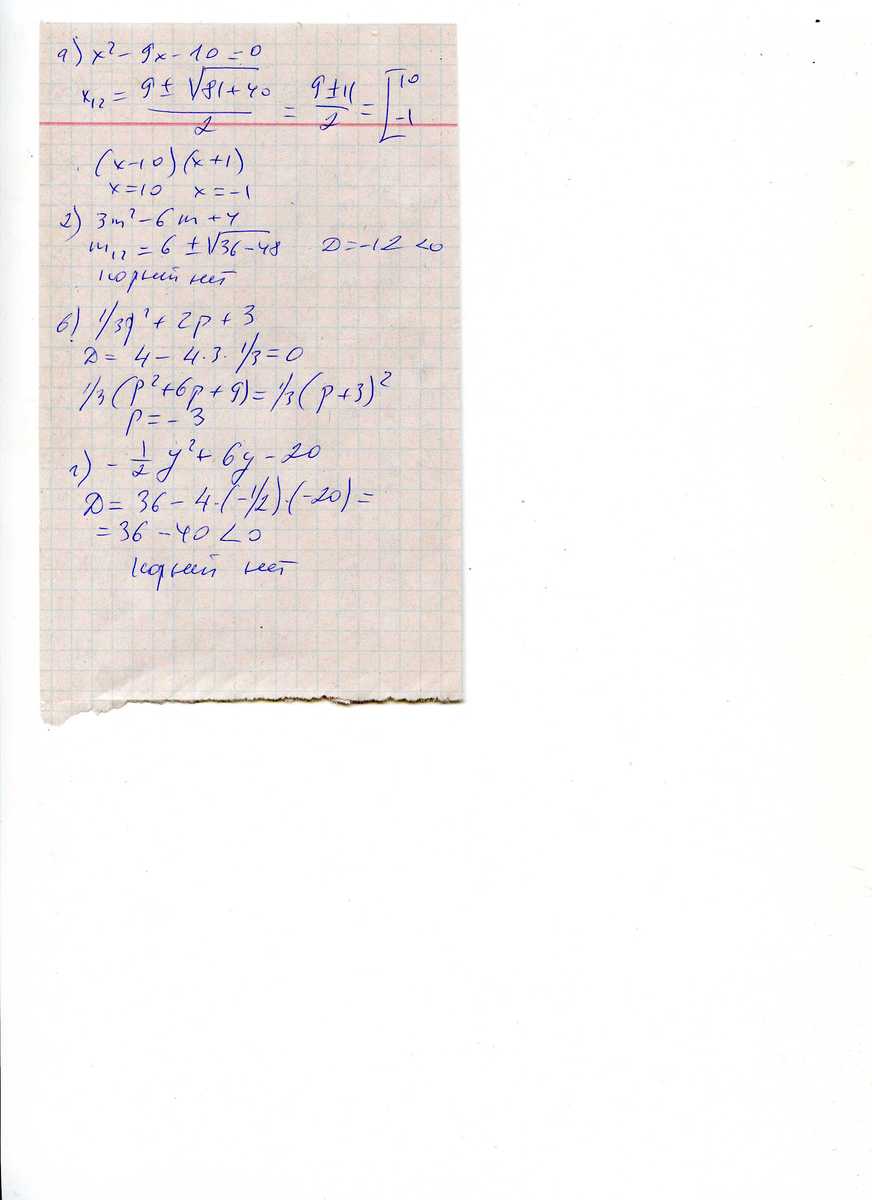 а) x² - 9x - 10 = 0
x₁₂ = (9 ± √(81+40))/2 = (9 ± 11)/2 = [10 -1
(x-10)(x+1)
x=10 x=-1
2) 3m² - 6m + 4
m₁₂ = 6 ± √(36-48) D = -12 < 0
корний нет
в) 1/3p² + 2p + 3
D = 4 - 4·3·1/3 = 0
1/3(p²+6p+9) = 1/3(p+3)²
p = -3
г) -1/2 y² + 6y - 20
D = 36 - 4·(-1/2)·(-20) =
= 36 - 40 < 0
корний нет